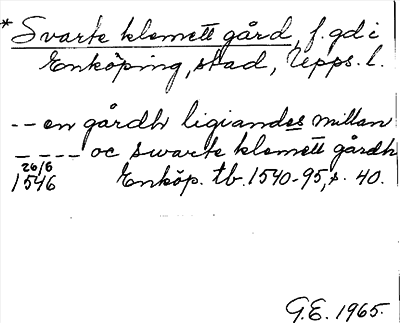 * Svarte klemett gård, f. gd i
Enköping, stad, Upps. l.
-- en gårdh ligiandes millan
---- oc swarte klemett gårdh
26/6
1546 Enköp. tb. 1540-95, s. 40.
G.E. 1965.